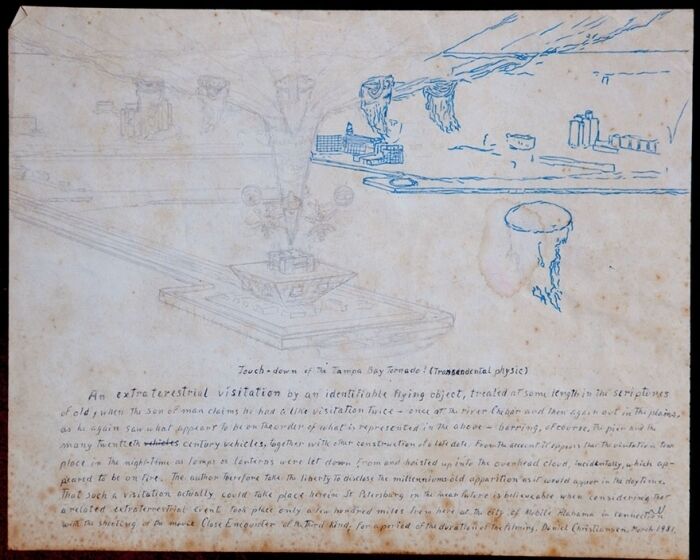 Touch-down of the Tampa Bay Tornado! (Transendental physic)
An extraterestrial visitation by an identifiable flying object, treated at some length in the scriptures
of old, when the son of man claims he had a like visitation twice - once at the river Chebar and then again out in the plains,
as he again saw what appear to be on the order of what is represented in the above - barring, of course, the pier and the
many twentieth vehicles century vehicles, together with other construction of a late date. From the account it appears that the visitation took
place in the night-time as lamps or lanterns were let down from and hoisted up into the overhead cloud, incidentally, which ap-
peared to be on fire. The author therefore take the liberty to disclose the milleniums old apparition as it would appear in the daytime.
That such a visitation actually could take place herein St Petersburg in the near future is believeable when considering that
a related extraterrestrial event took place only a few hundred miles from here at the city of Mobile Alabama in connection
with the shooting of the movie Close Encounter of the Third Kind; for a period of the duration of the filming. Daniel Christiansen March 1981.